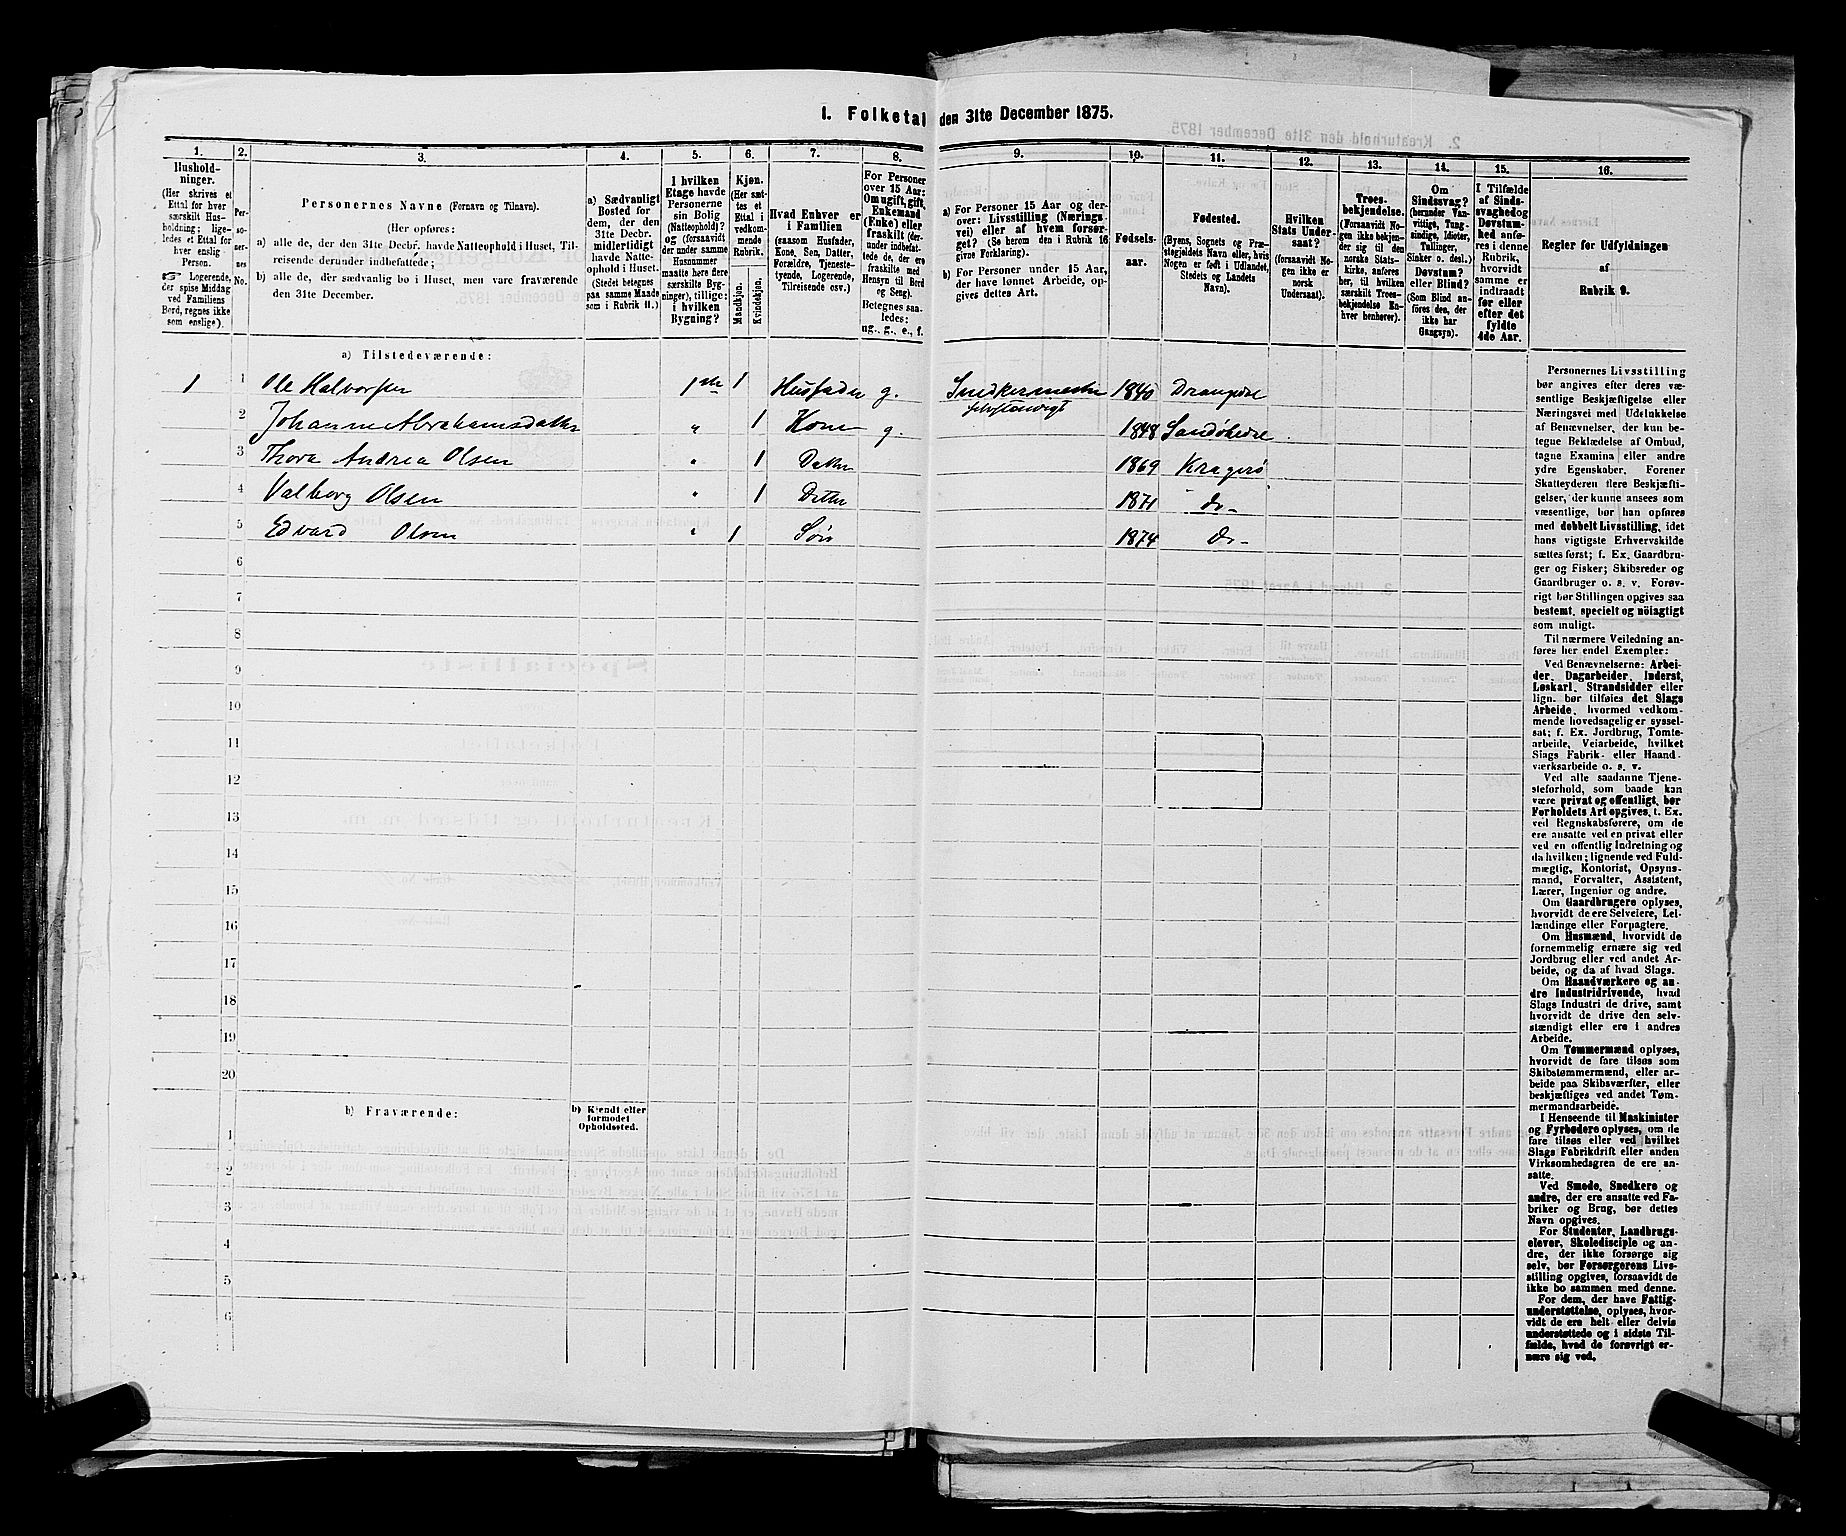 1. Folketal den 31te December 1875.
1. 2. 3. 4. 5. 6. 7. 8. 9. 10. 11. 12. 13. 14. 15. 16.
Hushold-
ninger.
(Her skrives et
Ettal for hver
særskilt Hus-
holdning; lige-
ledes et Ettal for
hver enslig
Person.
☞ Logerende,
der spise Middag
ved Familiens
Bord, regnes ikke
som enslige).
Per-
so-
ner-
nes
No.
Personernes Navne (Fornavn og Tilnavn).
(Her opføres:
a) alle de, der den 31te Decbr. havde Natteophold i Huset, Til-
reisende derunder indbefattede;
b) alle de, der sædvanlig bo i Huset, men vare fraværende
den 31te December.
a) Sædvanligt
Bosted for
dem, der den
31te Decbr.
midlertidigt
havde Natte-
ophold i Huset.
(Stedet betegnes
paa samme Maade
som i Rubrik 11.)
I hvilken
Etage havde
Personerne
sin Bolig
(Natteophold)?
og (forsaavidt
der under samme
Husnummer
maatte høre flere
særskilte Byg-
ninger), tillige:
i hvilken
Bygning?
Kjøn.
(Her sæt-
tes et
Ettal i
vedkom-
mende
Rubrik.
Mandkjøn.
Kvindekjøn.
Hvad Enhver er
i Familien
(saasom Husfader,
Kone, Søn, Datter,
Forældre, Tjeneste-
tyende, Logerende,
Tilreisende osv.)
For Personer
over 15 Aar:
Om ugift, gift,
Enkemand
(Enke) eller
fraskilt (der-
under indbefat-
tede de, der ere
fraskilte med
Hensyn til Bord
og Seng).
Betegnes saa-
ledes:
ug., g., e., f.
a) For Personer 15 Aar og der-
over: Livsstilling (Nærings-
vei) eller af hvem forsør-
get? (Se herom den i Rubrik 16
givne Forklaring).
b) For Personer under 15 Aar,
der have lønnet Arbeide, op-
gives dettes Art.
Fødsels-
aar.
Fødested.
(Byens, Sognets og Præ-
stegjeldets Navn eller, hvis
Nogen er født i Udlandet,
Stedets og Landets
Navn).
Hvilken
Stats Under-
saat?
(forsaavidt No-
gen ikke er
norsk
Undersaat).
Troes-
bekjendelse.
(Forsaavidt No-
gen ikke bekjen-
der sig til den
norske Stats-
kirke, anføres
her, til hvilken
særskilt Troes-
bekjendelse En-
hver henhører).
Om
Sindssvag?
(herunder Van-
vittige, Tung-
sindige, Idioter,
Tullinger,
Sinker o. desl.)
Døvstum?
eller Blind?
(Som Blind an-
føres den, der
ikke har
Gangsyn).
I Tilfælde
af Sinds-
svaghed og
Døvstum-
hed anfø-
res i denne
Rubrik,
hvorvidt
samme er
indtraadt
før eller
efter det
fyldte
4de Aar.
Regler for Udfyldningen
af
Rubrik 9.
a) Tilstedeværende:
1 1 Ole Halvorsen 1ste 1 Husfader g. Snedkermester 1840
selvstændigt
2 Johanne Abrahamsdatter " 1 Kone g. 1848 Sandøkedre
3 Thora Andrea Olsen " 1 Datter 1869 Kragerø
4 Valborg Olsen " 1 Datter 1871 do-
5 Edvard Olsen " 1 Søn 1874 do-
6
7
8
9
10
11
12
13
14
15
16
17
18
19
20
b) Fraværende:
b) Kjendt eller
formodet
Opholdssted.
1
2
3
4
5
6
Personernes Livsstilling
bør angives efter deres væ-
sentlige Beskjæftigelse eller
Næringsvei med Udelukkelse
af Benævnelser, der kun be-
tegne Beklædelse af Ombud,
tagne Examina eller andre
ydre Egenskaber. Forener
Skatteyderen flere Beskjæfti-
gelser, der kunne ansees som
væsentlige, bør han opføres
med dobbelt Livsstilling, idet
hans vigtigste Erhvervskilde
sættes først; f. Ex. Gaardbru-
ger og Fisker; Skibsreder og
Gaardbruger o. s. v. Forøv-
rigt bør Stillingen opgives saa
bestemt, specielt og nöiagtigt
som muligt.
Til nærmere Veiledning an-
føres her endel Exempler:
Ved Benævnelserne: Arbei-
der, Dagarbeider, Inderst,
Løskarl, Strandsidder eller
lign. bør tilføies det Slags
Arbeide, hvormed vedkom-
mende hovedsagelig er syssel-
sat; f. Ex. Jordbrug, Tomte-
arbeide, Veiarbeide, hvilket
Slags Fabrik- eller Haand-
værksarbeide o. s. v.
Ved alle saadanne Tjene-
steforhold, som baade kan
være privat og offentligt, bør
Forholdets Art opgives, t. Ex.
ved Regnskabsførere, om de
ere ansatte ved en privat eller
ved en offentlig Indretning og
da hvilken; lignende ved Fuld-
mægtig, Kontorist, Opsyns-
mand, Forvalter, Assistent,
Lærer, Ingeniør og andre.
Om Gaardbrugere oplyses,
hvorvidt de ere Selveiere, Lei-
lændinge eller Forpagtere.
Om Husmænd, hvorvidt de
fornemmelig ernære sig ved
Jordbrug eller ved andet Ar-
beide, og da af hvad Slags.
Om Haandværkere og an-
dre Industridrivende, hvad
Slags Industri de drive, samt
hvorvidt de drive den selv-
stændigt eller ere i andres
Arbeide.
Om Tømmermænd oplyses,
hvorvidt de fare tilsøs som
Skibstømmermænd, eller ar-
beide paa Skibsværfter, eller
beskjæftiges ved andet Tøm-
mermandsarbeide.
I Henseende til Maskinister
og Fyrbødere oplyses, om de
fare tilsøs eller ved hvilket
Slags Fabrikdrift eller anden
Virksomhedsgren de ere an-
satte.
Ved Smede, Snedkere og
andre, der ere ansatte ved Fa-
briker og Brug, bør dettes
Navn opgives.
For Studenter, Landbrugs-
elever, Skoledisciple og an-
dre, der ikke forsørge sig
selv, bør Forsørgerens Livs-
stilling opgives, forsaavidt de
ikke bo sammen med denne.
For dem, der have Fattig-
understøttelse, oplyses, hvor-
vidt de ere helt eller delvis
understøttede og i sidste Til-
fælde, hvad de forøvrigt er-
nære sig ved.